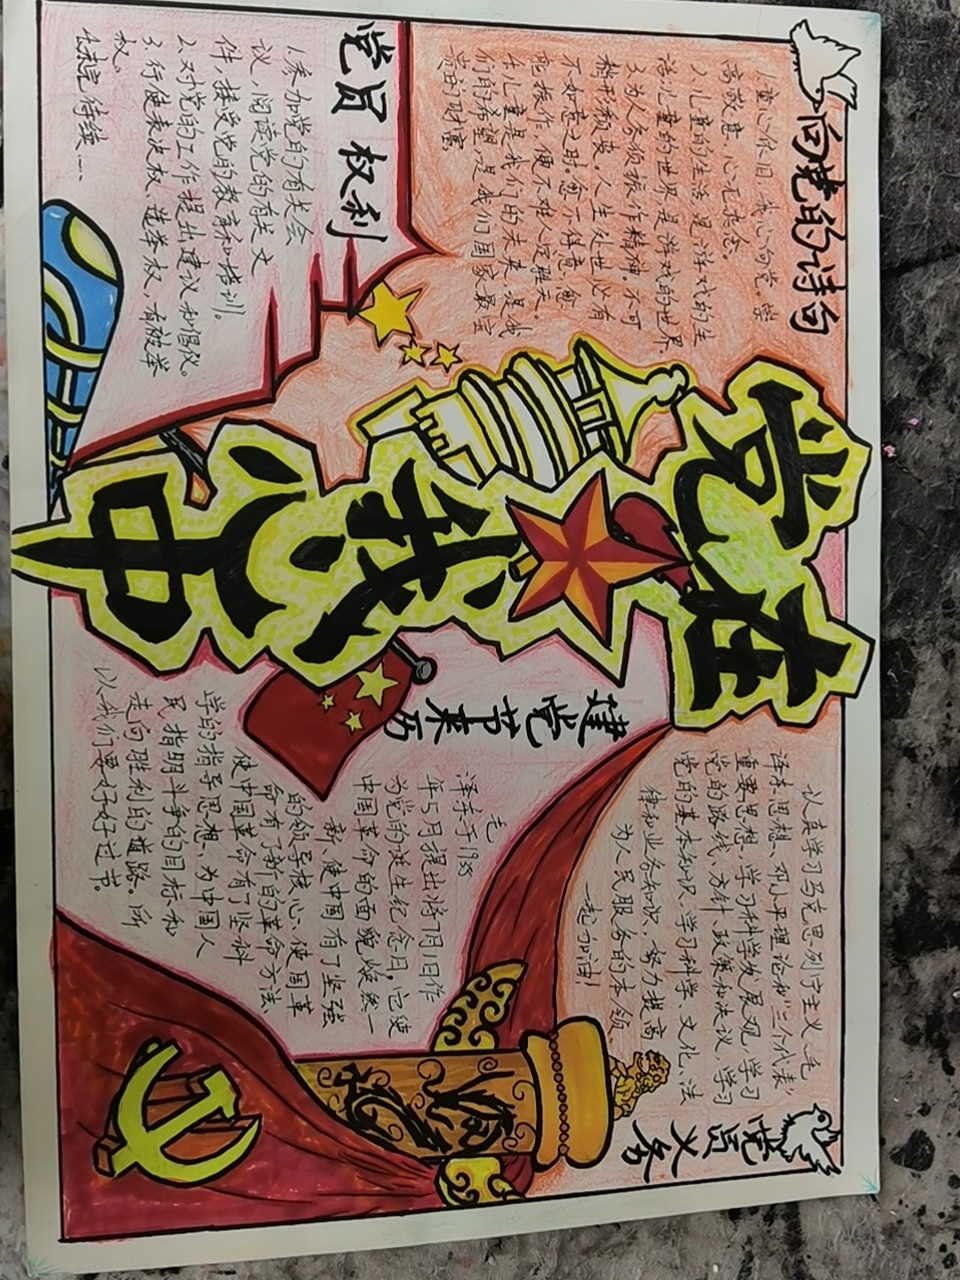 向党的诗句
1.童心依旧,我心向党,崇
高敬意,心无杂念。
2.儿童的生活是游戏的生
活,儿童的世界是游戏的世界.
3.为人务须振作精神,不可
稍开颓废。人生处世,必有
不如意之时,愈不得意,愈
能振作,便不难人定胜天。
4.儿童是我们的未来,是我
们的希望,是我们国家最宝
贵的财富
党员权利
1.参加党的有关会
议,阅读党的有关文
件,接受党的教育和培训。
2.对党的工作提出建议和倡仪。
3.行使表决权、选举权,有被举
权。
4.未完待续......
党在我心中
党员义务
认真学习马克思列宁主义、毛
泽东思想、邓小平理论和"三个代表"
重要思想,学习科学发展观,学习
党的路线、方针、政策和决议,学习
党的基本知识,学习科学、文化、法
律和业务知识,努力提高
为人民服务的本领
一起加油!
建党节来历
毛
泽东于1938
年5月提出将7月1日作
为党的诞生纪念日。它使
中国革命的面貌焕然一
新,使中国有了坚强
的领导核心、使国革
命有了新的革命方法、
使中国革命有了坚科
学的指导思想、为中国人
民指明斗争的目标和
走向胜利的道路。所
以我们要好好过节。